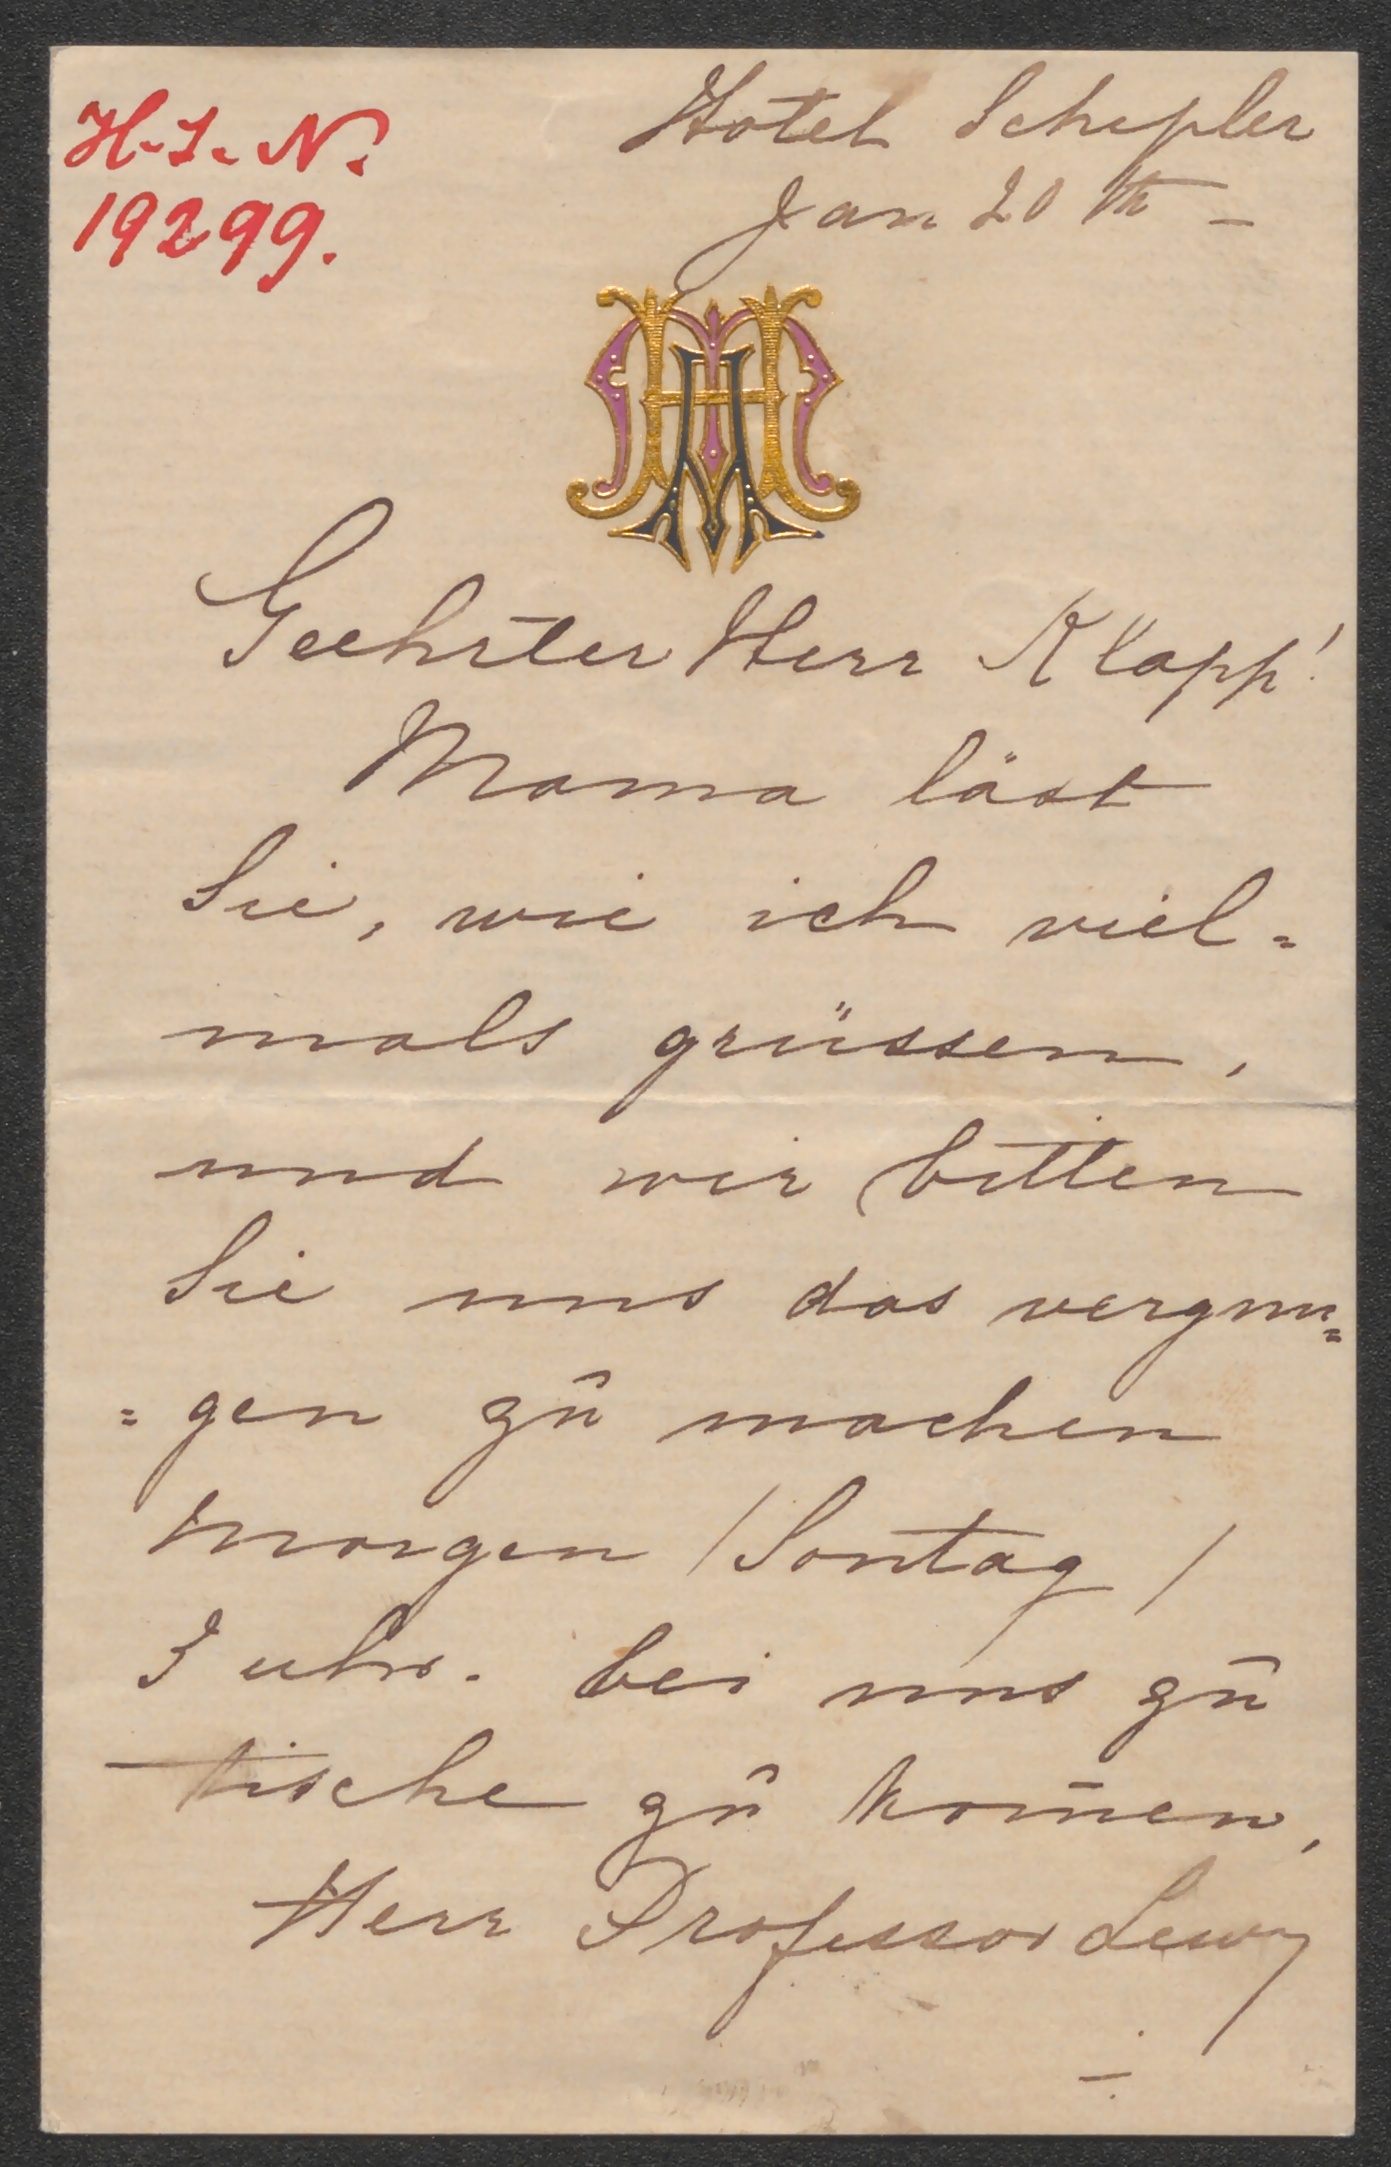 H. I. N.
19299.
Hotel Schepler
Jan 20th –
Geehrter Herr Klapp!
Mama läst
Sie, wie ich viel=
mals grüssen,
und wir bitten
Sie uns das vergnu=
=gen zū machen
Morgen /Sontag/
3 uhr. bei uns zū
tische zū kom̄en,
Herr Professor Lewy